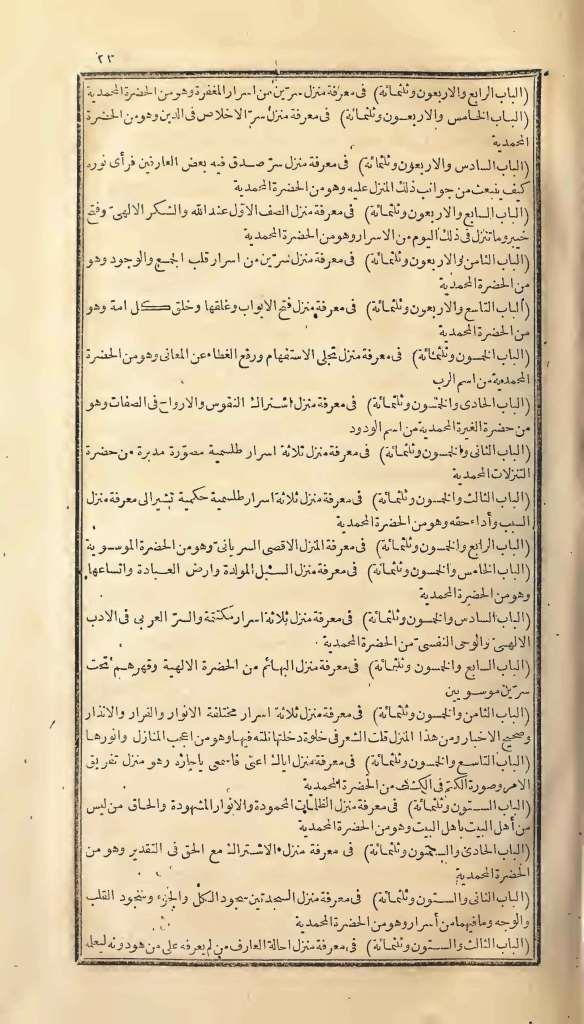 ٢٣
(الباب الرابع والاربعون وثلثمائة) فى معرفة منزل سرين من اسرار المغفرة وهو من الحضرة المحمدية
(الباب الخامس والاربعون وثلثمائة) فى معرفة منزل سر الاخلاص فى الدين وهو من الحضرة
المحمدية
(الباب السادس والاربعون وثلثمائة) فى معرفة منزل سر صدق فيه بعض العارفين فرأى نوره
كيف ينبعث من جوانب ذلك المنزل عليه وهو من الحضرة المحمدية
(الباب السابع والاربعون وثلثمائة) فى معرفة منزل الصف الاول عند الله والشكر الالهى وفتح
خيبر وما تنزل فى ذلك اليوم من الاسرار وهو من الحضرة المحمدية
(الباب الثامن والاربعون وثلثمائة) فى معرفة منزل سرين من اسرار قلب الجمع والوجود وهو
من الحضرة المحمدية
(الباب التاسع والاربعون وثلثمائة) فى معرفة منزل فتح الابواب وغلقها وخلق كل امة وهو
من الحضرة المحمدية
(الباب الخمسون وثلثمائة) فى معرفة منزل تجلى الاستفهام ورفع الغطاء عن المعانى وهو من الحضرة
المحمدية من اسم الرب
(الباب الحادى والخمسون وثلثمائة) فى معرفة منزل اشتراك النفوس والارواح فى الصفات وهو
من حضرة الغيرة المحمدية من اسم الودود
(الباب الثانى والخمسون وثلثمائة) فى معرفة منزل ثلاثة اسرار طلسمية مصورة مدبرة من حضرة
التنزلات المحمدية
(الباب الثالث والخمسون وثلثمائة) فى معرفة منزل ثلاثة اسرار طلسمية حكمية تشير الى معرفة منزل
السبب وأداء حقه وهو من الحضرة المحمدية
(الباب الرابع والخمسون وثلثمائة) فى معرفة المنزل الاقصى السريانى وهو من الحضرة الموسوية
(الباب الخامس والخمسون وثلثمائة) فى معرفة منزل السبل المولدة وارض العبادة واتساعها
وهو من الحضرة المحمدية
(الباب السادس والخمسون وثلثمائة) فى معرفة منزل ثلاثة اسرار مكتتمة والسر العربى فى الادب
الالهى والوحى النفسى من الحضرة المحمدية
(الباب السابع والخمسون وثلثمائة) فى معرفة منزل البهائم من الحضرة الالهية وقهرهم تحت
سرين موسويين
(الباب الثامن والخمسون وثلثمائة) فى معرفة منزل ثلاثة اسرار مختلفة الانوار والفرار والانذار
وصحيح الاخبار ومن هذا المنزل قلت الشعر فى خلوة دخلتها نلته فيها وهو من اعجب المنازل وانورها
(الباب التاسع والخمسون وثلثمائة) فى معرفة منزل اياك اعنى فاسمعى ياجاره وهو منزل تفريق
الامر وصورة الكتم فى الكشف من الحضرة المحمدية
(الباب الستون وثلثمائة) فى معرفة منزل الظلمات المحمودة والانوار المشهودة والحاق من ليس
من أهل البيت بأهل البيت وهو من الحضرة المحمدية
(الباب الحادى والستون وثلثمائة) فى معرفة منزل الاشتراك مع الحق فى التقدير وهو من
الحضرة المحمدية
(الباب الثانى والستون وثلثمائة) فى معرفة منزل السجدتين سجود الكل والجزء وسجود القلب
والوجه وما فيهما من أسرار وهو من الحضرة المحمدية
(الباب الثالث والستون وثلثمائة) فى معرفة منزل احالة العارف من لم يعرفه على من هو دونه ليعلمه